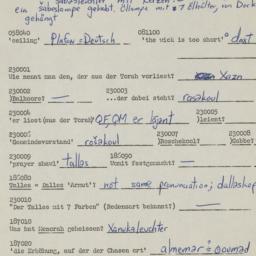 ein Šabeslampe gehabt. Ellampe mit 7 Elhälter, von Deck
gehängt
058040
'ceiling' Plafon = Deutsch
081100
'the wick is too short'
230001
Wie nennt man den, der aus der Torah vorliest? Xazn
230002
)Balkoore( —
230003
...der dabei steht? rosakoul
230004
'er liest (aus der Torah)'
230005
)leient(
230006
'Gemeindevorstand' rošakoul
230007
)Roschekool(
230008
)Gabbe(
230009
'prayer shawl' tallas
186090
Womit festgemacht? —
186080
Talles = Dalles 'Armut'? not same pronunciation; dallashop
230010
"Der Talles mit 7 Farben" (Redensart bekannt?) —
187010
Was hat Menorah geheissen? Xanukaleuchter
187020
'die Erhöhung, auf der der Chasen ort' almemar